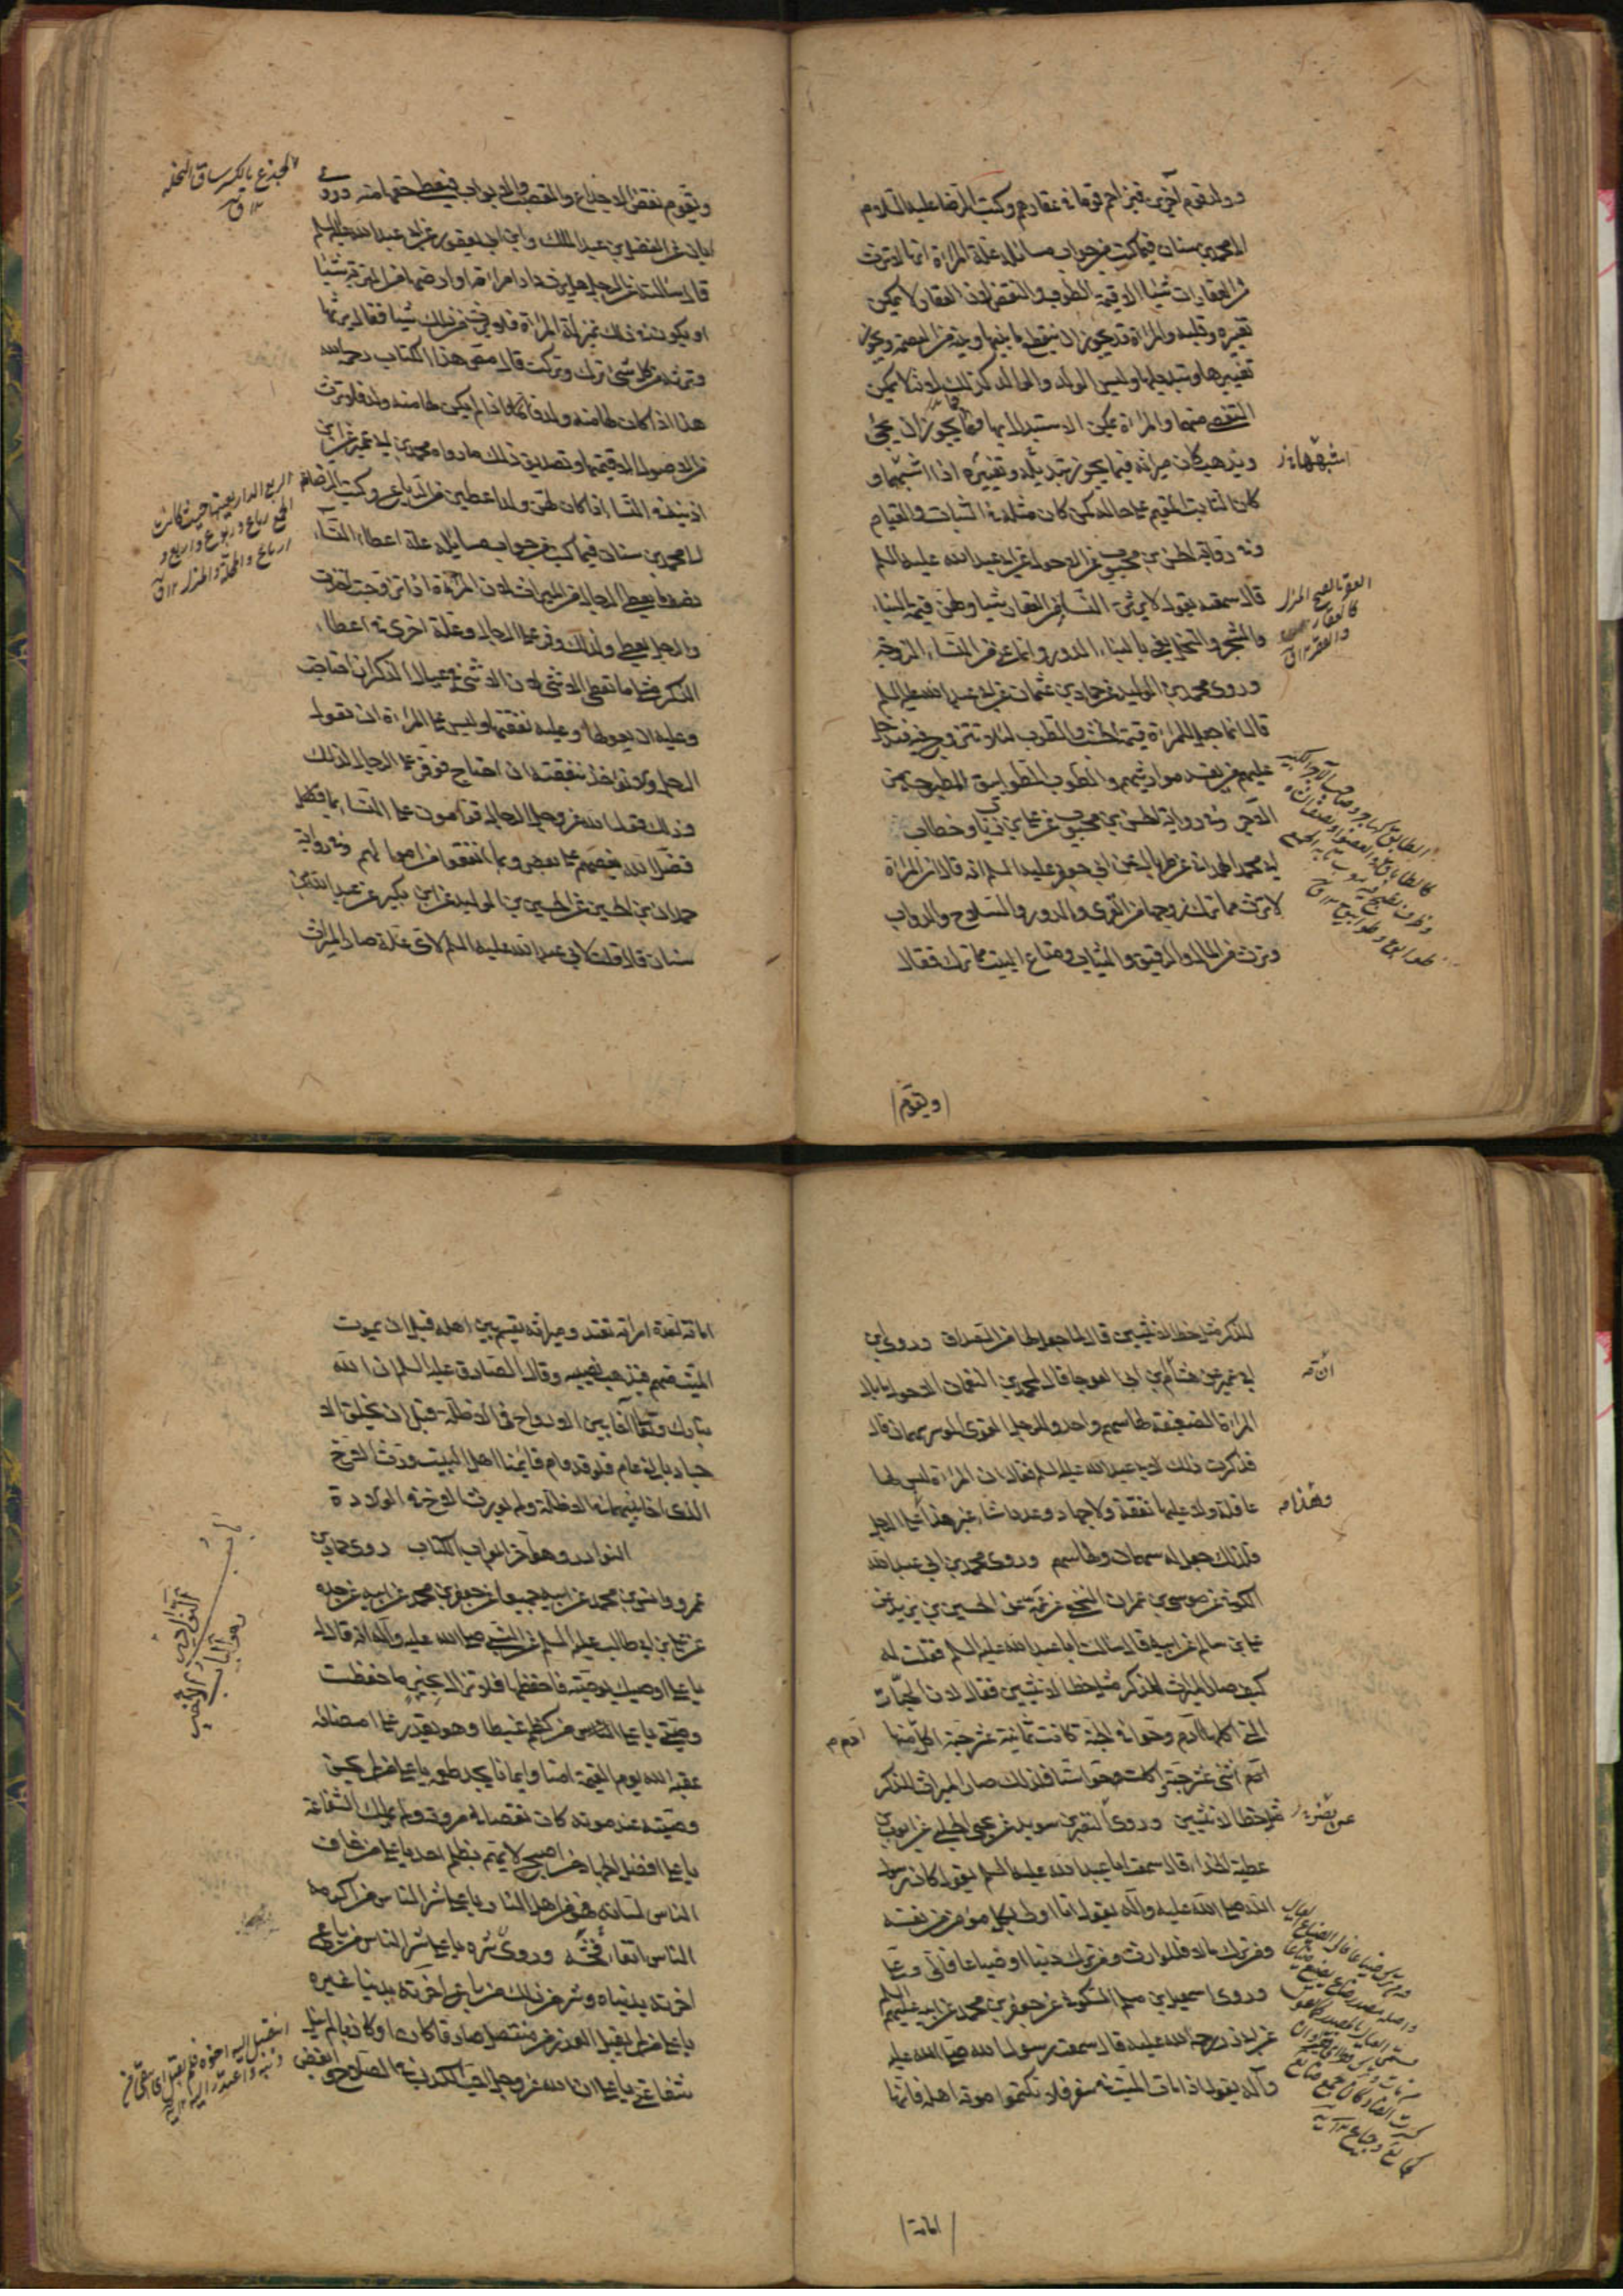 وولد قوم آخرين فيزاحم قوما في عقارهم وكتب الرضا عليه السلام
الى محمد بن سنان فيما كتب من جواب مسائله علة المرأة انها لا ترث
من العقارات شيئا الا قيمة الطوب والنقض لان العقار لا يمكن
تغييره وقلبه والمرأة قد يجوز ان ينقطع ما بينها وبينه من العصمة ويجوز
تغييرها وتبديلها وليس الولد والوالد كذلك لانه لا يمكن
التفصي منهما والمرأة يمكن الاستبدال بها فما يجوز ان يجيء
ويذهب كان ميراثه فيما يجوز تبديله وتغييره اذا اشبهها و
كان الثابت المقيم على حاله كمن كان مثله في الثبات والقيام
وفي رواية الحسن بن محبوب عن الاحول عن ابي عبد الله عليه السلم
قال سمعته يقول لا يرثن النساء من العقار شيئا ولهن قيمة البناء
والشجر والنخل يعني بالبناء الدور وانما عنى من النساء الزوجة
وروى محمد بن الوليد عن حماد بن عثمان عن ابي عبد الله عليه السلم
قال انما جعل للمرأة قيمة الخشب والطوب لئلا تتزوج فيدخل
عليهم من يفسد مواريثهم والطوب الطوابيق المطبوخة من
الآجر وفي رواية الحسن بن محبوب عن علي بن رئاب وخطاب
ابي محمد الهمداني عن طربال عن ابي جعفر عليه السلم انه قال ان المرأة
لا ترث مما ترك زوجها من القرى والدور والسلاح والدواب
وترث من المال والرقيق والثياب ومتاع البيت مما ترك فقال
اشبهها
العقر بالضم المنزل
كالعقار
ويقوم
ويقوم نقض الاجذاع والقصب والابواب فيعطى حقها منه وروى
ابان عن الفضل بن عبد الملك وابن ابي يعفور عن ابي عبد الله عليه السلم
قال سألته عن الرجل هل يرث دار امرأته او ارضها من التربة شيئا
او يكون في ذلك بمنزلة المرأة فلا يرث من ذلك شيئا فقال يرثها
وترثه من كل شيء ترك وتركت قال مصنف هذا الكتاب رحمه الله
هذا اذا كان لها منه ولد فاما اذا لم يكن لها منه ولد فلا ترث
من الاصول الا قيمتها وتصديق ذلك ما رواه محمد بن ابي عمير عن ابن
اذينة في النساء اذا كان لهن ولد اعطين من الرباع وكتب الرضا
الى محمد بن سنان فيما كتب من جواب مسائله علة اعطاء النساء
نصف ما يعطى الرجال من الميراث لان المرأة اذا تزوجت اخذت
والرجل يعطى ولذلك وفر على الرجال وعلة اخرى في اعطاء
الذكر مثلي ما تعطى الانثى لان الانثى في عيال الذكر ان احتاجت
وعليه ان يعولها وعليه نفقتها وليس على المرأة ان تعول
الرجل ولا تؤخذ بنفقته ان احتاج فوفر على الرجال لذلك
وذلك قول الله عز وجل الرجال قوامون على النساء بما فضل
فضل الله بعضهم على بعض وبما انفقوا من اموالهم وفي رواية
حمدان بن الحسين عن الحسين بن الوليد عن ابن بكير عن عبد الله بن
سنان قال قلت لابي عبد الله عليه السلم لاي علة صار الميراث
الجذع بالكسر ساق النخلة
الربع الدار بعينها حيث كانت
الجمع رباع وربوع واربع و
ارباع والمحلة والمنزل
للذكر مثل حظ الانثيين قال لما جعل لها من الصداق وروى ابن
ابي عمير عن هشام بن ابي العوجا قال لمحمد بن النعمان الاحول ما بال
المرأة الضعيفة لها سهم واحد وللرجل القوي الموسر سهمان قال
فذكرت ذلك لابي عبد الله عليه السلم فقال ان المرأة ليس لها
عاقلة ولا عليها نفقة ولا جهاد وعدد اشياء غير هذا على الرجل
فلذلك جعل له سهمان ولها سهم وروى محمد بن ابي عبد الله
الكوفي عن موسى بن عمران النخعي عن عمه عن الحسين بن يزيد عن
علي بن سالم عن ابيه قال سألت ابا عبد الله عليه السلم فقلت له
كيف صار الميراث للذكر مثل حظ الانثيين فقال لان الحبات
التي اكلها آدم وحوا في الجنة كانت ثمانية عشر حبة اكل منها
آدم اثنى عشر حبة واكلت حوا ستا فلذلك صار الميراث للذكر
مثل حظ الانثيين وروى النضر بن سويد عن يحيى الحلبي عن ايوب بن
عطية الحذاء قال سمعت ابا عبد الله عليه السلم يقول كان رسول
الله صلى الله عليه وآله يقول انا اولى بكل مؤمن من نفسه
ومن ترك مالا فللوارث ومن ترك دينا او ضياعا فالي وعلي
وروى اسمعيل بن مسلم السكوني عن جعفر بن محمد عن ابيه عليهم السلم
عن ابي ذر رحمة الله عليه قال سمعت رسول الله صلى الله عليه
وآله يقول اذا مات الميت في سفر فلا تكتموا موته اهله فانها
وهذا
آدم
امانة
امانة لعدة امرأته تعتد وميراثه يقسم بين اهله قبل ان يموت
الميت منهم فيذهب نصيبه وقال الصادق عليه السلم ان الله
تبارك وتعالى آخا بين الارواح في الاظلة قبل ان يخلق الا
جساد بالفي عام فلو قد قام قائمنا اهل البيت ورث الاخ
الذي آخا بينهما في الاظلة ولم يورث الاخ في الولادة
النوادر وهو آخر ابواب الكتاب روى حماد بن
عمرو وانس بن محمد عن ابيه جميعا عن جعفر بن محمد عن ابيه عن جده
عن علي بن ابي طالب عليه السلم عن النبي صلى الله عليه وآله انه قال له
يا علي اوصيك بوصية فاحفظها فلا تزال بخير ما حفظت
وصيتي يا علي من كظم غيظا وهو يقدر على امضائه
عقبه الله يوم القيمة امنا وايمانا يجد طعمه يا علي من لم يحسن
وصيته عند موته كان نقصا في مروته ولم يملك الشفاعة
يا علي افضل الجهاد من اصبح لا يهتم بظلم احد يا علي من خاف
الناس لسانه فهو من اهل النار يا علي شر الناس من اكرمه
الناس اتقاء فحشه وروى شره يا علي شر الناس من باع
اخرته بدنياه وشر من ذلك من باع اخرته بدنيا غيره
يا علي من لم يقبل العذر من متنصل صادقا كان او كاذبا لم ينل
شفاعتي يا علي ان الله عز وجل احب الكذب في الصلاح وابغض
باب
النوادر
وهو آخر ابواب